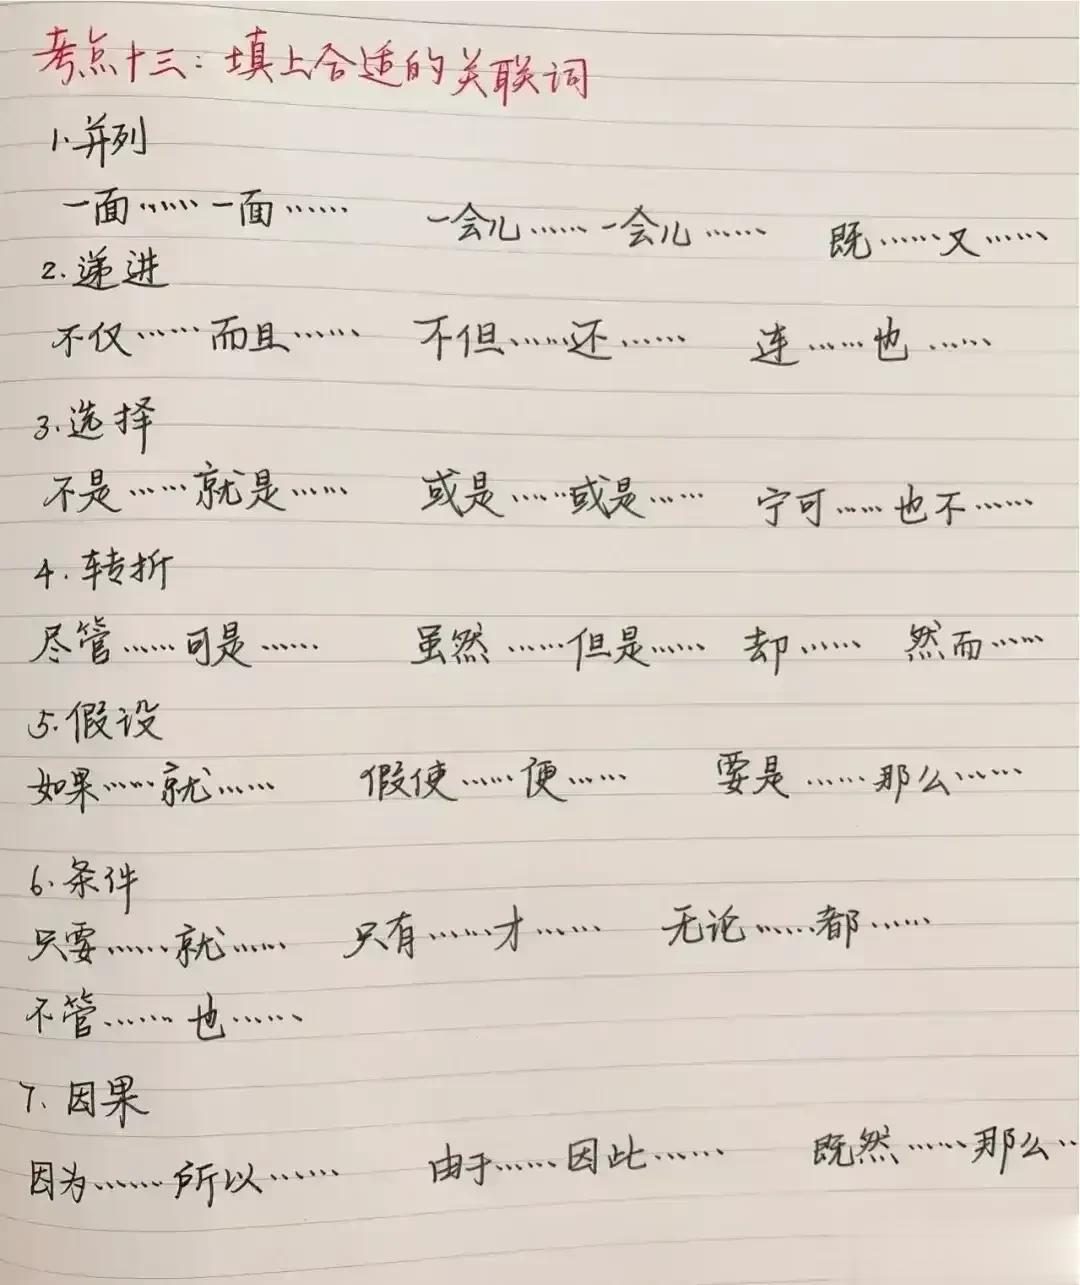 考点十三：填上合适的关联词
1.并列
一面……一面…… 一会儿……一会儿…… 既……又……
2.递进
不仅……而且…… 不但……还…… 连……也……
3.选择
不是……就是…… 或是……或是…… 宁可……也不……
4.转折
尽管……可是…… 虽然……但是…… 却…… 然而……
5.假设
如果……就…… 假使……便…… 要是……那么……
6.条件
只要……就…… 只有……才…… 无论……都……
不管……也……
7.因果
因为……所以…… 由于……因此…… 既然……那么…